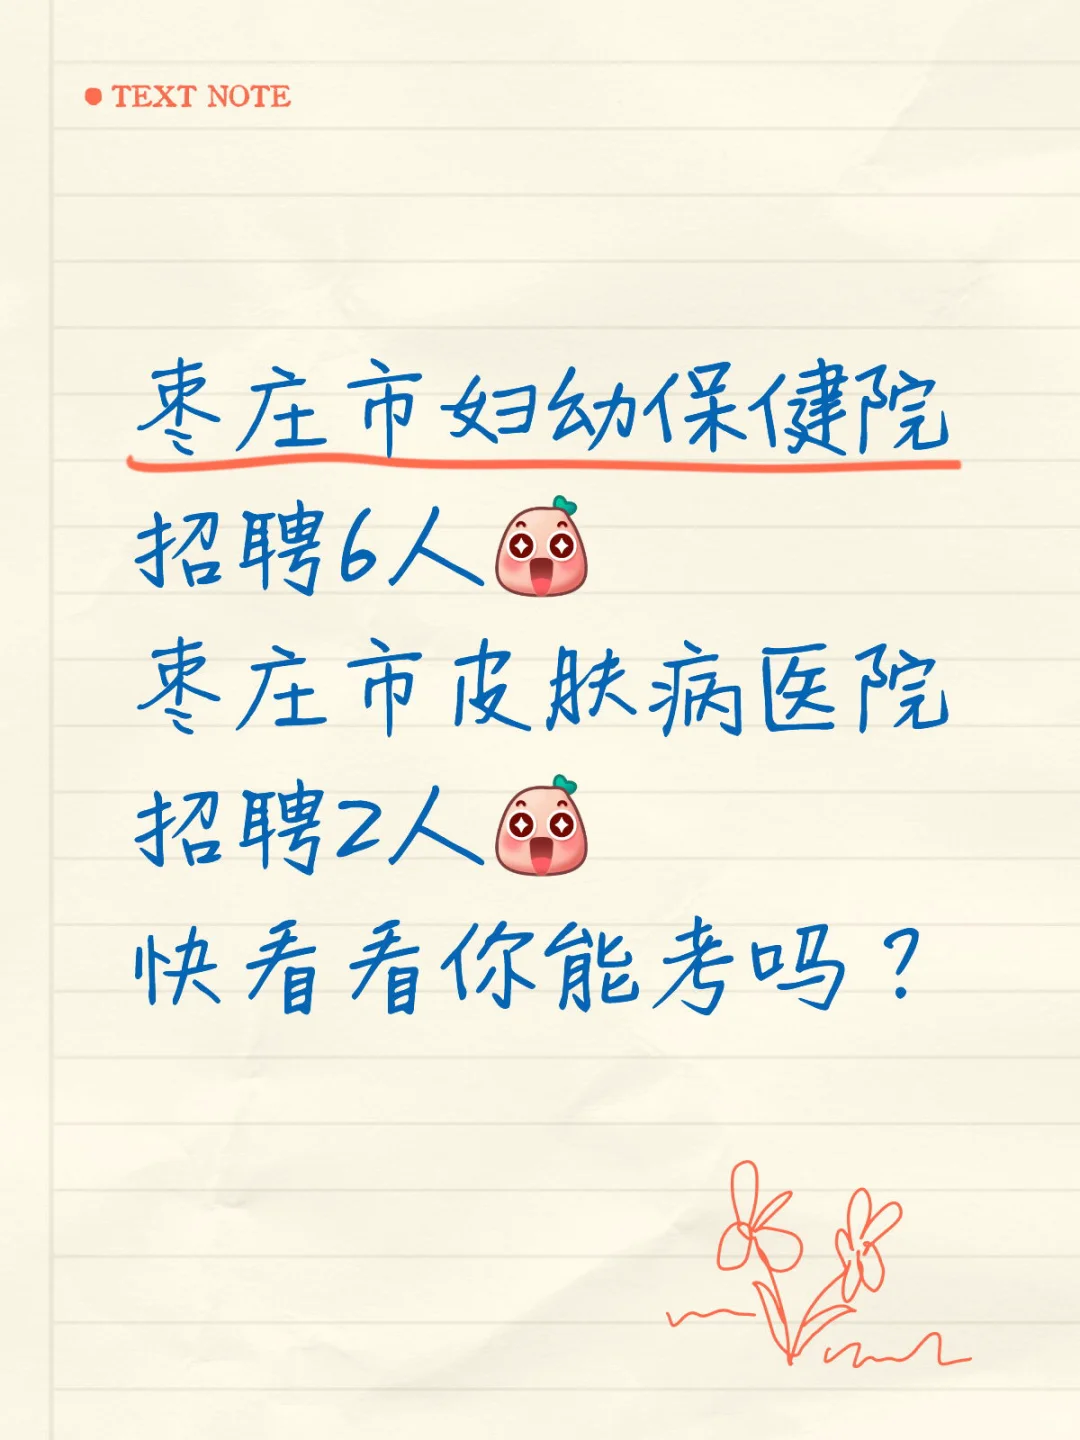 TEXT NOTE
枣庄市妇幼保健院
招聘6人
枣庄市皮肤病医院
招聘2人
快看看你能考吗？